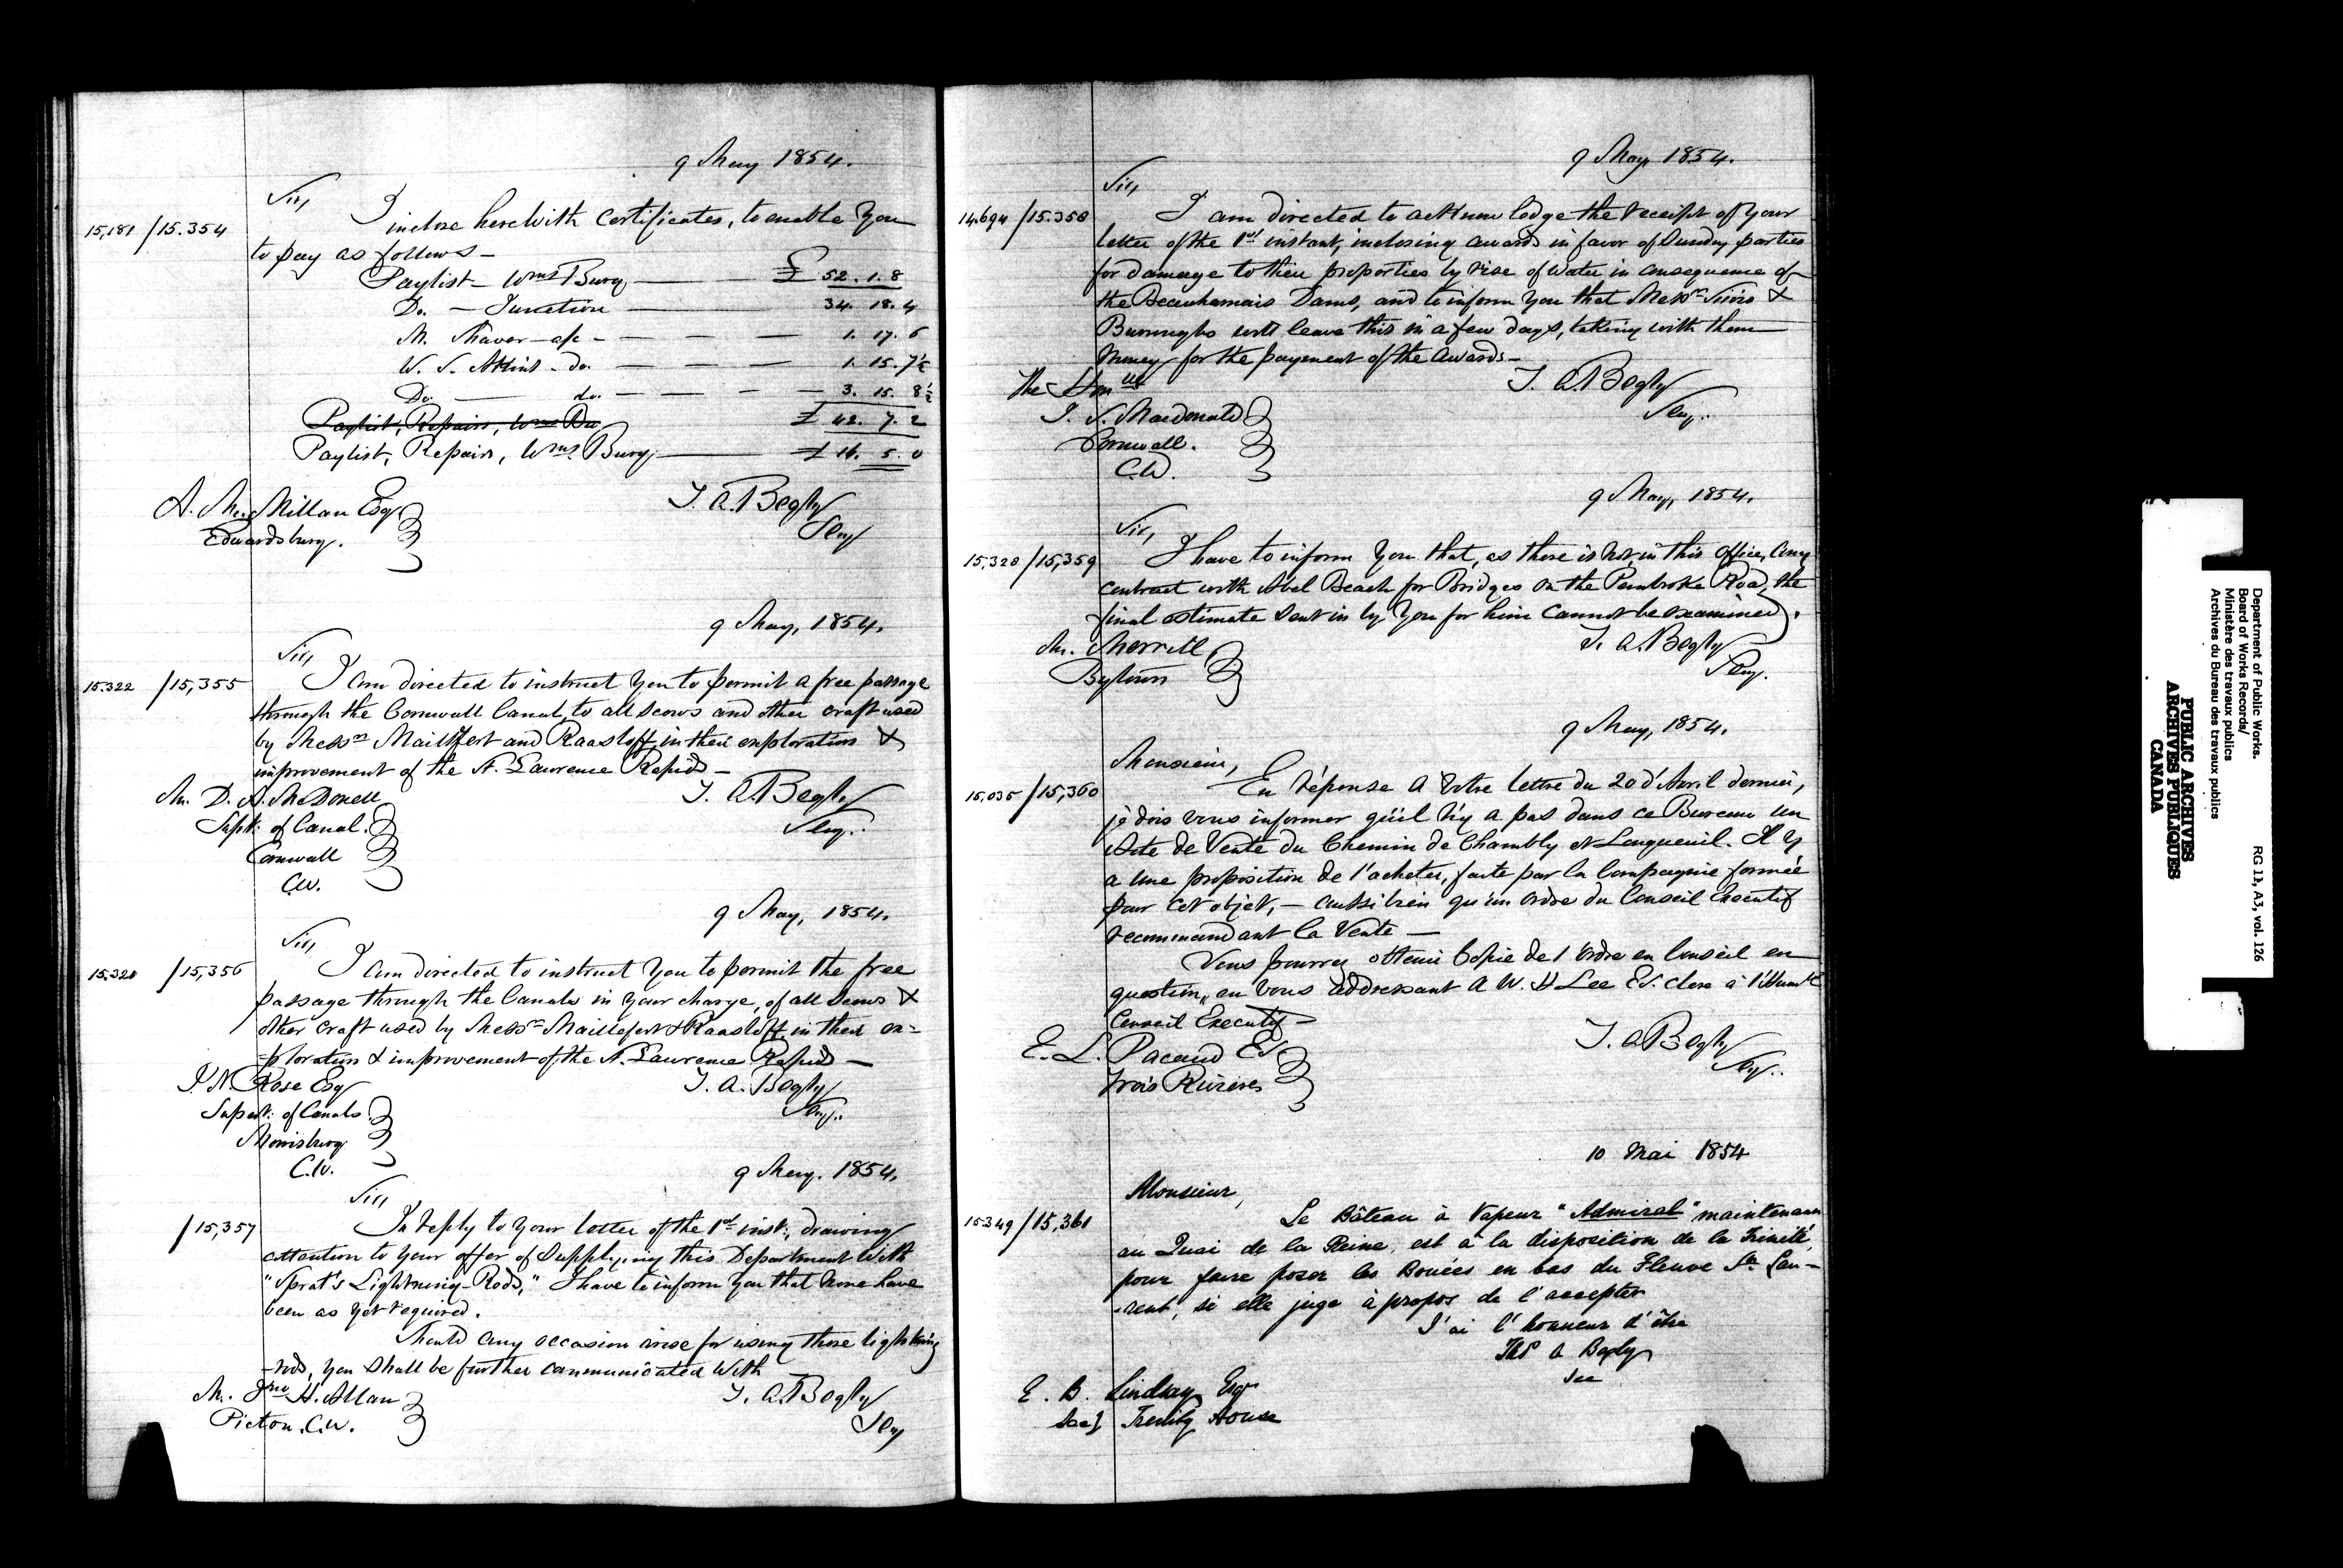 9 May 1854.
Sir,
15,181 / 15.354
I inclose herewith Certificates, to enable you
to pay as follows —
Paylist — Wmsburg — £ 52. 1. 8
Do. — Junction — 34. 18. 4
M. — a/c — 1. 17. 6
W. S. — do. — 1. 15. 7½
Do. — do. — 3. 15. 8½
£ 42. 7. 2
Paylist, Repairs, Wmsburg — £ 16. 5. 0
A. McMillan Esq
Edwardsburg.
T. A. Begly
Secy
9 May, 1854.
Sir,
15.322 / 15,355
I am directed to instruct you to permit a free passage
through the Cornwall Canal, to all scows and other craft used
by Messrs Maillefert and Raasloff, in their exploration &
improvement of the St. Lawrence Rapids —
Mr. D. A. McDonell
Supt. of Canal.
Cornwall
C.W.
T. A. Begly
Secy.
9 May, 1854.
Sir,
15.320 / 15,356
I am directed to instruct you to permit the free
passage through the Canals in your charge, of all scows &
other craft used by Messrs Maillefert & Raasloff, in their ex=
=ploration & improvement of the St. Lawrence Rapids —
I. N. Rose Esq
Supert. of Canals
Morrisburg
C.W.
T. A. Begly
Secy.
9 May. 1854.
Sir,
/ 15,357
In reply to your letter of the 1st inst., drawing
attention to your offer of supplying this Department with
"Sprat's Lightning-Rods," I have to inform you that none have
been as yet required.
Should any occasion arise for using those lightning
-rods, you shall be further communicated with
Mr. Jno H. Allan
Picton. C.W.
T. A. Begly
Secy
9 May, 1854.
Sir,
14.694 / 15.358
I am directed to acknowledge the receipt of your
letter of the 1st instant, inclosing awards in favor of Sundry parties
for damage to their properties by rise of water in consequence of
the Beauharnais Dams, and to inform you that Messrs &
Burroughs will leave this in a few days, taking with them
money for the payment of the awards —
The Honble
J. S. Macdonald
Cornwall.
C.W.
T. A. Begly
Secy.
9 May, 1854.
Sir,
15.328 / 15,359
I have to inform you that, as there is not, in this office, any
contract with Abel Beach for Bridges on the Pembroke Road, the
final estimate sent in by you for him cannot be examined.
Mr. Merrill
Bytown
T. A. Begly
Secy.
9 May, 1854.
Monsieur,
15,035 / 15,360
En réponse à votre lettre du 20 d'Avril dernier,
je dois vous informer qu'il n'y a pas dans ce Bureau un
Acte de Vente du Chemin de Chambly et Longueuil. Il y
a une proposition de l'acheter, faite par la Compagnie formée
pour cet objet, — aussi bien qu'un ordre du Conseil Executif
recommandant la Vente —
Vous pourrez obtenir Copie de l'ordre en Conseil en
question, en vous addressant à W. H Lee Er. clerc à l'Honble
Conseil Executif —
E. L. Pacaud Er.
Trois Rivières
T. A. Begly
Secy.
10 Mai 1854
Monsieur,
15349 / 15,361
Le Bâteau à Vapeur "Admiral" maintenant
au Quai de la Reine, est à la disposition de la Trinité,
pour faire poser les Bouées en bas du Fleuve St. Lau-
-rent, si elle juge à propos de l'accepter
J'ai l'honneur d'être
Ths A Begly
Sec
E. B. Lindsay Esqr
Sec} Trinity House
Department of Public Works.
Board of Works Records/
Ministère des travaux publics
Archives du Bureau des travaux publics
RG 11, A3, vol. 126
PUBLIC ARCHIVES
ARCHIVES PUBLIQUES
CANADA